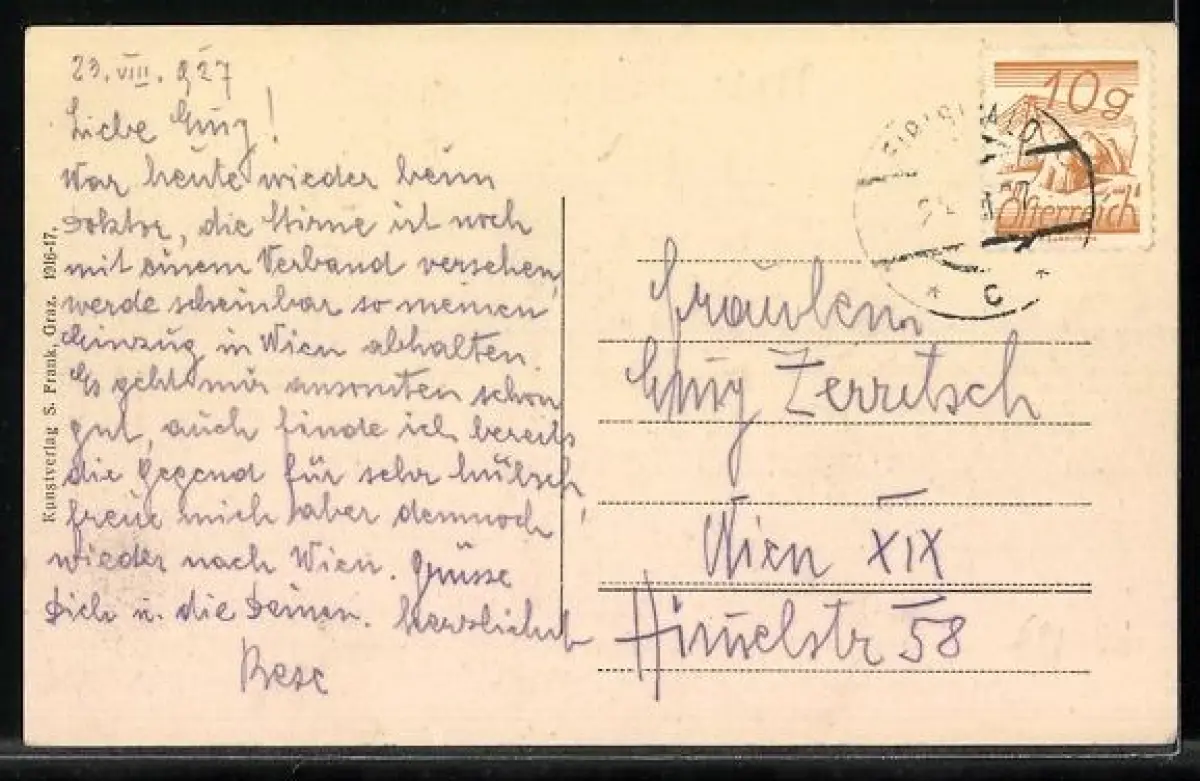 23. VIII. 927
Liebe Gusy!
War heute wieder beim
Doktor, die Stirne ist noch
mit einem Verband versehen,
werde scheinbar so meinen
Einzug in Wien abhalten.
Es geht mir ansonsten schon
gut, auch finde ich bereits
die Gegend für sehr hübsch,
freue mich aber dennoch
wieder nach Wien. Grüsse
Dich u. die Deinen. herzlichst
Kunstverlag S. Frank, Graz. 1916-17.
10g
Österreich
C
Fräulein
Gusy Zerritsch
Wien XIX
Himmelstr 58